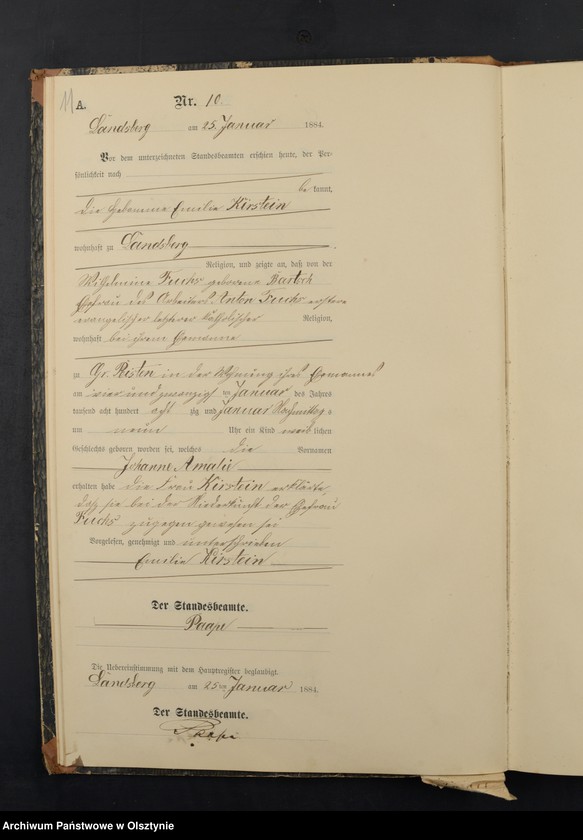 11 A.
Nr. 10.
Landsberg am 25. Januar 1884.
Vor dem unterzeichneten Standesbeamten erschien heute, der Per-
sönlichkeit nach
be kannt,
die Hebamme Emilie Kirstein
wohnhaft zu Landsberg
Religion, und zeigte an, daß von der
Wilhelmine Fuchs geborene Bartsch
Ehefrau des Arbeiters Anton Fuchs erstere
evangelischer letzterer katholischer Religion,
wohnhaft bei ihrem Ehemanne
zu Gr. in der Wohnung ihres Ehemannes
am vier und zwanzigsten Januar des Jahres
tausend acht hundert acht zig und Nachmittags
um neun Uhr ein Kind weib lichen
Geschlechts geboren worden sei, welches die Vornamen
Johanne Amalie
erhalten habe die Frau Kirstein erklärte,
daß sie bei der Niederkunft der Ehefrau
Fuchs zugegen gewesen sei
Vorgelesen, genehmigt und unterschrieben
Emilie Kirstein
Der Standesbeamte.
Paape
Die Uebereinstimmung mit dem Hauptregister beglaubigt.
Landsberg am 25ten Januar 1884.
Der Standesbeamte.
Paape
Archiwum Państwowe w Olsztynie